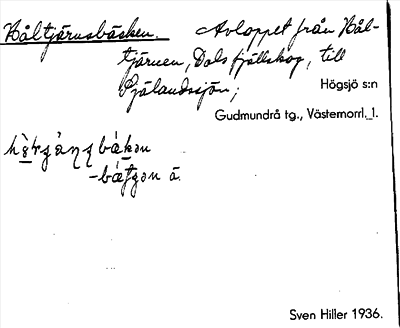 Håltjärnsbäcken. Avloppet från Hål-
tjärnen, Dals fjällskog, till
Själandssjön;
Högsjö s:n
Gudmundrå tg., Västernorrl. l.
bäkən
ä.
Sven Hiller 1936.